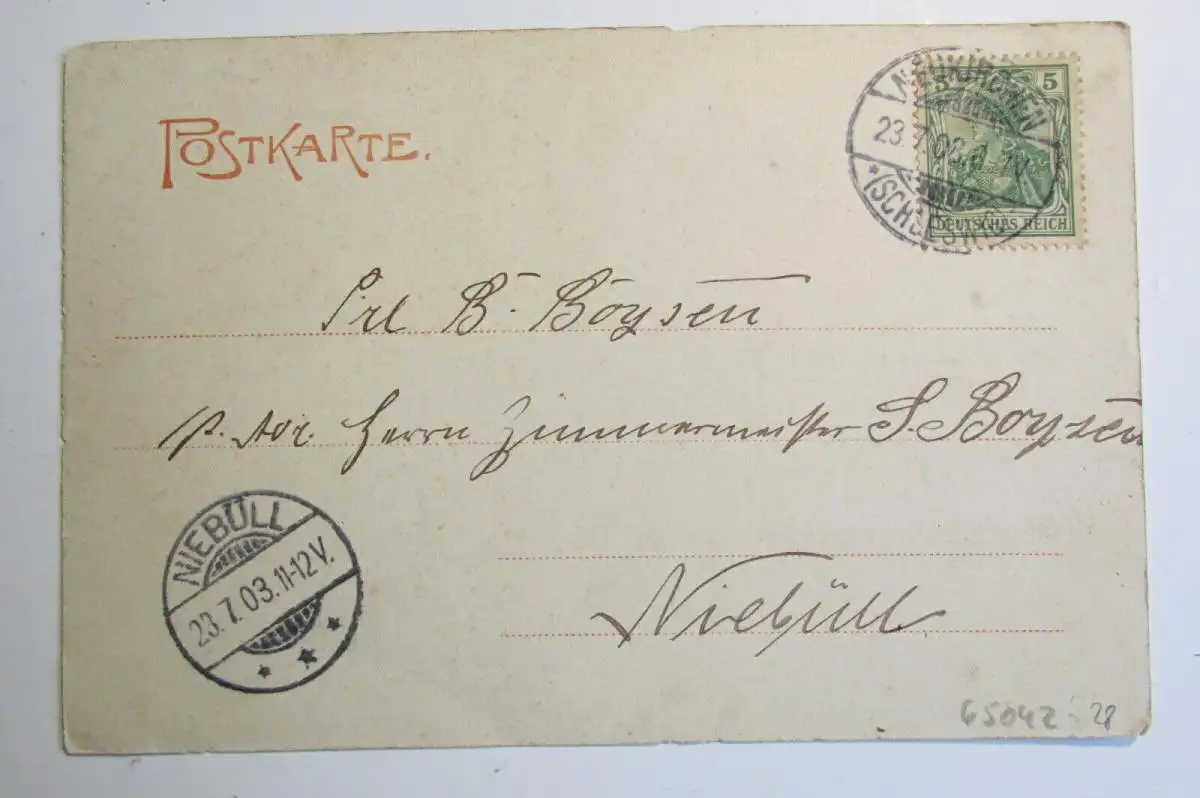 POSTKARTE.
NEUKIRCHEN
23.7.03.
* (SCHLESWIG)
5
DEUTSCHES REICH
Frl B. Boysen
p. Adr. Herrn Zimmermeister S. Boysen
NIEBÜLL
23.7.03.11-12V.
* * *
Niebüll
65042
28